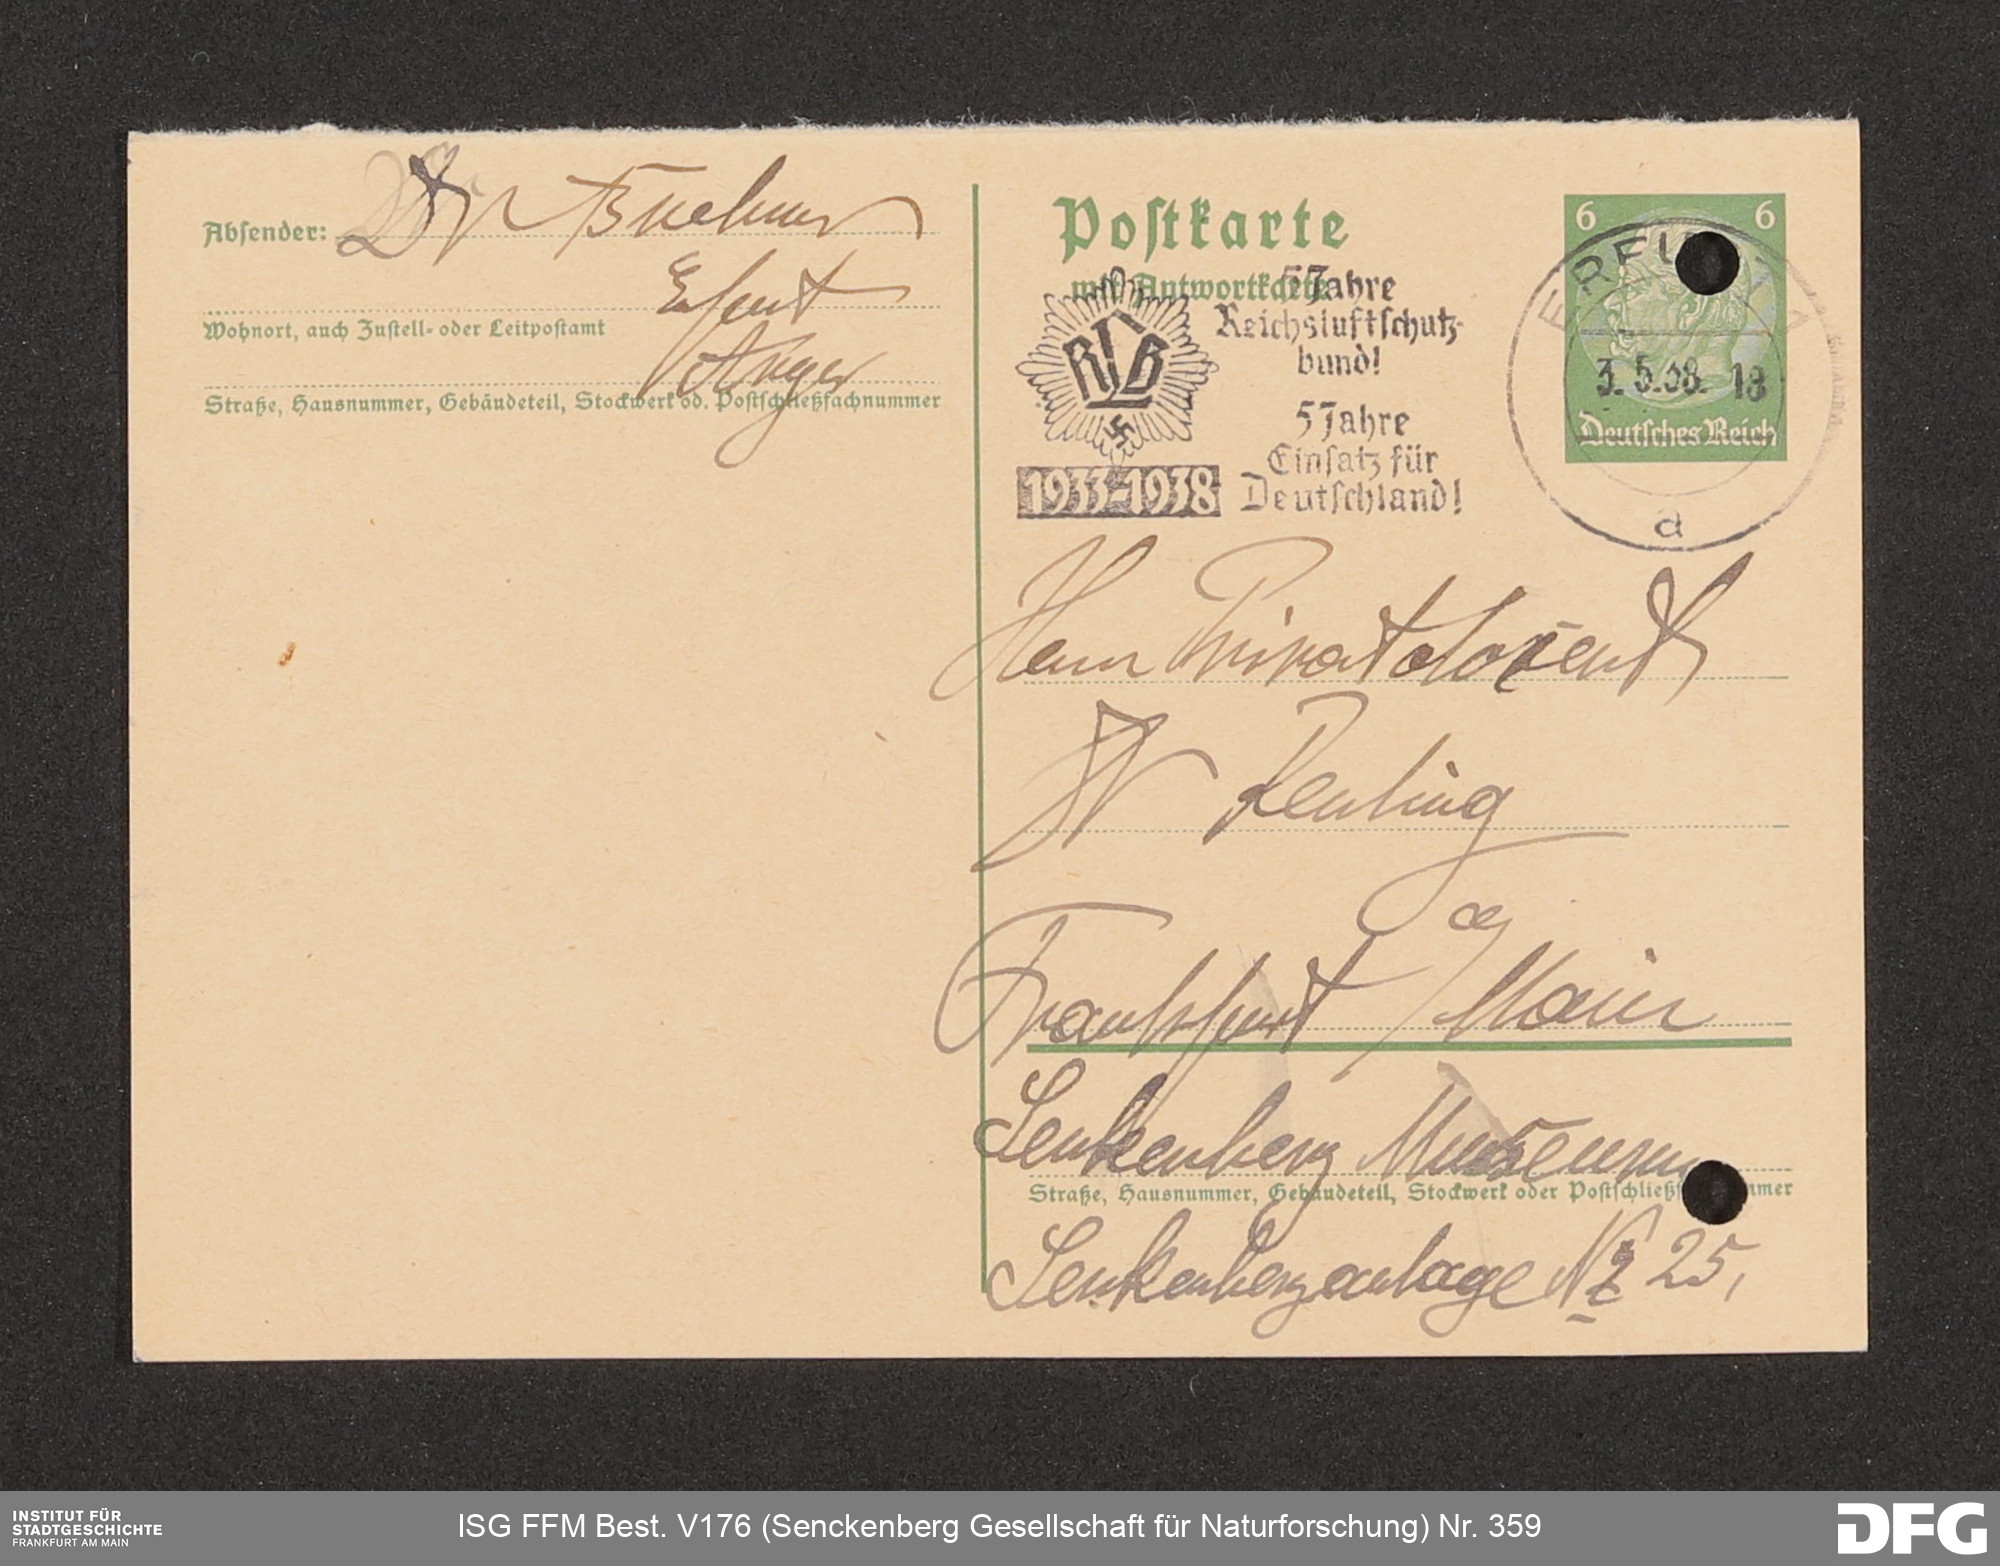 Absender: Dr Buehner
Erfurt
Wohnort, auch Zustell- oder Leitpostamt
Anger
Straße, Hausnummer, Gebäudeteil, Stockwerk od. Postschließfachnummer
Postkarte
mit Antwortkarte
6 6
ERFURT 1
3.5.38. 18
Deutsches Reich
a
RLB
1933-1938
5 Jahre
Reichsluftschutz-
bund!
5 Jahre
Einsatz für
Deutschland!
Herrn Privatdozent
Dr
Frankfurt a/Main
Senkenberg Museum
Straße, Hausnummer, Gebäudeteil, Stockwerk oder Postschließfachnummer
Senkenberganlage Nr 25,
INSTITUT FÜR
STADTGESCHICHTE
FRANKFURT AM MAIN
ISG FFM Best. V176 (Senckenberg Gesellschaft für Naturforschung) Nr. 359
DFG